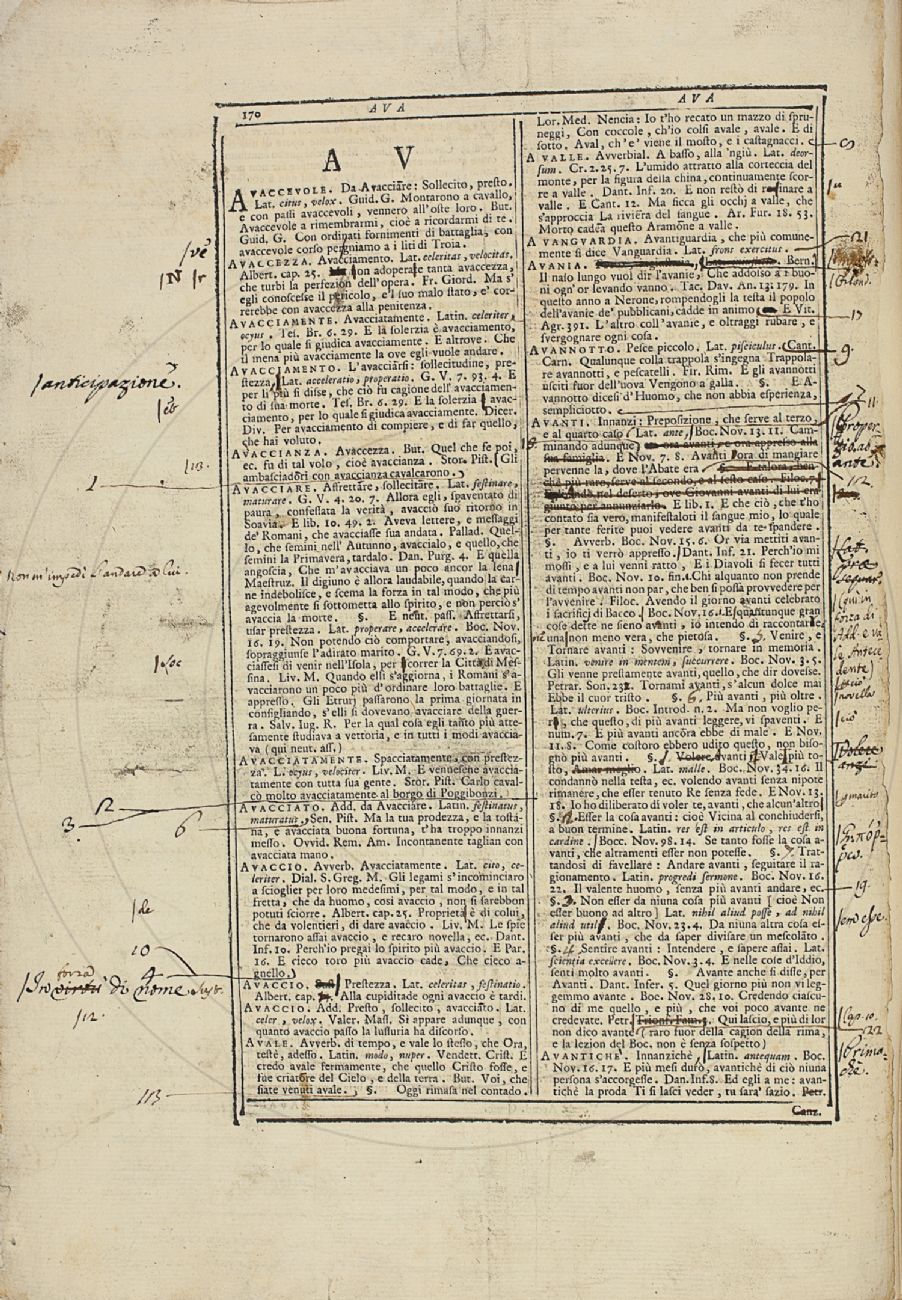 170
AVA
AVA
A V
AVACCEVOLE. Da Avacciare: Sollecito, presto.
Lat. citus, velox. Guid. G. Montarono a cavallo,
e con passi avaccevoli, vennero all'oste loro. But.
Avaccevole a rimembrarmi, cioè a ricordarmi di te.
Guid. G. Con ordinati fornimenti di battaglia, con
avaccevole corso perveniamo a i liti di Troia.
AVACCEZZA. Avacciamento. Lat. celeritas, velocitas.
Albert. cap. 25. Non adoperate tanta avaccezza,
che turbi la perfezion dell'opera. Fr. Giord. Ma s'
egli conoscesse il pericolo, e 'l suo malo stato, e' cor-
rerebbe con avaccezza alla penitenza.
AVACCIAMENTE. Avacciatamente. Latin. celeriter,
ocyus. Tes. Br. 6. 29. E la solerzia è avacciamento,
per lo quale si giudica avacciamente. E altrove. Che
il mena più avacciamente la ove egli vuole andare.
AVACCIAMENTO. L'avacciarsi: sollecitudine, pre-
stezza, Lat. acceleratio, properatio. G. V. 7. 93. 4. E
per li più si disse, che ciò fu cagione dell'avacciamen-
to di sua morte. Tes. Br. 6. 29. E la solerzia avac-
ciamento, per lo quale si giudica avacciamente. Dicer.
Div. Per avacciamento di compiere, e di far quello,
che hai voluto.
AVACCIANZA. Avaccezza. But. Quel che fe poi,
ec. fu di tal volo, cioè avaccianza. Stor. Pist. Gli
ambasciadori con avaccianza cavalcarono.
AVACCIARE. Affrettare, sollecitare. Lat. festinare,
maturare. G. V. 4. 20. 7. Allora egli, spaventato di
paura, confessata la verità, avacciò suo ritorno in
Soavia. E lib. 10. 49. 2. Aveva lettere, e messaggi
de' Romani, che avacciasse sua andata. Pallad. Quel-
lo, che semini nell' Autunno, avaccialo, e quello, che
semini la Primavera, tardalo. Dan. Purg. 4. E quella
angoscia, Che m'avacciava un poco ancor la lena
Maestruz. Il digiuno è allora laudabile, quando la car-
ne indebolisce, e scema la forza in tal modo, che più
agevolmente si sottometta allo spirito, e non perciò s'
avaccia la morte. §. E neut. pass. Affrettarsi,
usar prestezza. Lat. properare, accelerare. Boc. Nov.
16. 19. Non potendo ciò comportare, avacciandosi,
sopraggiunse l'adirato marito. G. V. 7. 69. 2. E avac-
ciassesi di venir nell'Isola, per iscorrer la Città di Mes-
sina. Liv. M. Quando elli s'aggiorna, i Romani s'a-
vacciarono un poco più d'ordinare loro battaglie. E
appresso. Gli Etrurj passarono la prima giornata in
consigliando, s'elli si dovevano avacciare della guer-
ra. Salv. Iug. R. Per la qual cosa egli tanto più atte-
samente studiava a vettoria, e in tutti i modi avaccia-
va (qui neut. ass.)
AVACCIATAMENTE. Spacciatamente, con prestez-
za. L. ocyus, velociter. Liv. M. E vennesene avaccia-
tamente con tutta sua gente. Stor. Pist. Carlo caval-
cò molto avacciatamente al borgo di Poggibonzi.
AVACCIATO. Add. da Avacciare. Latin. festinatus,
maturatus, Sen. Pist. Ma la tua prodezza, e la tostà-
na, e avacciata buona fortuna, t'ha troppo innanzi
messo. Ovvid. Rem. Am. Incontanente taglian con
avacciata mano.
AVACCIO. Avverb. Avacciatamente. Lat. cito, ce-
leriter. Dial. S. Greg. M. Gli legami s'incominciaro
a scioglier per loro medesimi, per tal modo, e in tal
fretta, che da huomo, così avaccio, non si sarebbon
potuti sciorre. Albert. cap. 25. Proprietà è di colui,
che da volentieri, di dare avaccio. Liv. M. Le spie
tornarono assai avaccio, e recaro novella, ec. Dant.
Inf. 10. Perch'io pregai lo spirito più avaccio. E Par.
16. E cieco toro più avaccio cade, Che cieco a-
gnello.
AVACCIO. Prestezza. Lat. celeritas, festinatio.
Albert. cap. Alla cupiditade ogni avaccio è tardi.
AVACCIO. Add. Presto, sollecito, avacciato. Lat.
celer, velox. Valer. Mass. Si appare adunque, con
quanto avaccio passo la lussuria ha discorso.
AVALE. Avverb. di tempo, e vale lo stesso, che Ora,
testè, adesso. Latin. modo, nuper. Vendett. Crist. E
credo avale fermamente, che quello Cristo fosse, e
fue criatore del Cielo, e della terra. But. Voi, che
siate venuti avale. §. Oggi rimasa nel contado.
Lor. Med. Nencia: Io t'ho recato un mazzo di spru-
neggi, Con coccole, ch'io colsi avale, avale. E di
sotto. Aval, ch'e' viene il mosto, e i castagnacci.
A VALLE. Avverbial. A basso, alla 'ngiù. Lat. deor-
sum. Cr. 2. 25. 7. L'umido attratto alla corteccia del
monte, per la figura della china, continuamente scor-
re a valle. Dant. Inf. 20. E non restò di ruinare a
valle. E Cant. 12. Ma ficca gli occhj a valle, che
s'approccia La riviera del sangue. Ar. Fur. 18. 53.
Morto cadea questo Aramone a valle.
AVANGUARDIA. Avantiguardia, che più comune-
mente si dice Vanguardia. Lat. frons exercitus.
AVANIA. Bern.
Il naso lungo vuol dir l'avanie: Che addosso a i buo-
ni ogn'or levando vanno. Tac. Dav. An. 13. 179. In
questo anno a Nerone, rompendogli la testa il popolo
dell'avanie de' pubblicani, cadde in animo E Vit.
Agr. 391. L'altro coll'avanie, e oltraggi rubare, e
svergognare ogni cosa.
AVANNOTTO. Pesce piccolo. Lat. pisciculus. Cant.
Carn. Qualunque colla trappola s'ingegna Trappola-
re avannotti, e pescatelli. Fir. Rim. E gli avannotti
usciti fuor dell'uova Vengono a galla. §. E A-
vannotto dicesi d'Huomo, che non abbia esperienza,
sempliciotto.
AVANTI. Innanzi: Preposizione, che serve al terzo,
e al quarto caso Lat. ante, Boc. Nov. 13. 11. Cam-
minando adunque ora avanti, e ora appresso alla
sua famiglia. E Nov. 7. 8. Avanti ora di mangiare
pervenne la, dove l'Abate era §. E talora, ben-
chè più rare, serve al secondo, e al sesto caso. Filoc. 7.
Andò nel deserto, ove Giovanni avanti di lui era
giunto per annunziarlo. E lib. 1. E che ciò, che t'ho
contato sia vero, manifestaloti il sangue mio, lo quale
per tante ferite puoi vedere avanti da te spandere.
§. Avverb. Boc. Nov. 15. 6. Or via mettiti avan-
ti, io ti verrò appresso. Dant. Inf. 21. Perch'io mi
mossi, e a lui venni ratto, E i Diavoli si fecer tutti
avanti. Boc. Nov. 10. fin. Chi alquanto non prende
di tempo avanti non par, che ben si possa provvedere per
l'avvenire. Filoc. Avendo il giorno avanti celebrato
i sacrifici di Bacco Boc. Nov. 16. 1. E quantunque gran
cose dette ne sieno avanti, io intendo di raccontarne
una non meno vera, che pietosa. §. 5. Venire, e
Tornare avanti: Sovvenire, tornare in memoria.
Latin. venire in mentem, succurrere. Boc. Nov. 3. 5.
Gli venne prestamente avanti, quello, che dir dovesse.
Petrar. Son. 231. Tornami avanti, s'alcun dolce mai
Ebbe il cuor tristo. §. 6. Più avanti, più oltre.
Lat. ulterius. Boc. Introd. n. 2. Ma non voglio pe-
rò, che questo, di più avanti leggere, vi spaventi. E
num. 7. E più avanti ancora ebbe di male. E Nov.
11. 8. Come costoro ebbero udito questo, non biso-
gnò più avanti. §. Volere avanti Vale più to-
sto, Amar meglio. Lat. malle. Boc. Nov. 34. 16. Il
condannò nella testa, ec. volendo avanti senza nipote
rimanere, che esser tenuto Re senza fede. E Nov. 13.
18. Io ho diliberato di voler te, avanti, che alcun'altro
§. Esser la cosa avanti: cioè Vicina al conchiudersi,
a buon termine. Latin. res est in articulo, res est in
cardine. Bocc. Nov. 98. 14. Se tanto fosse la cosa a-
vanti, che altramenti esser non potesse. §. 7. Trat-
tandosi di favellare: Andare avanti, seguitare il ra-
gionamento. Latin. progredi sermone. Boc. Nov. 16.
22. Il valente huomo, senza più avanti andare, ec.
§. Non esser da niuna cosa più avanti [cioè Non
esser buono ad altro] Lat. nihil aliud posse, ad nihil
aliud utilis. Boc. Nov. 23. 4. Da niuna altra cosa es-
ser più avanti, che da saper divisare un mescolato.
§. Sentire avanti: Intendere, e sapere assai. Lat.
scientia excellere. Boc. Nov. 3. 4. E nelle cose d'Iddio,
sentì molto avanti. §. Avante anche si disse, per
Avanti. Dant. Infer. 5. Quel giorno più non vi leg-
gemmo avante. Boc. Nov. 28. 10. Credendo ciascu-
no di me quello, che voi poco avante ne
credevate. Petr. Trionf. Fam. 3. Qui lascio, e più di lor
non dico avante ( raro fuor della cagion della rima,
e la lezion del Boc. non è senza sospetto)
AVANTICHÈ. Innanzichè, Latin. antequam. Boc.
Nov. 16. 17. E più mesi durò, avantichè di ciò niuna
persona s'accorgesse. Dan. Inf. 8. Ed egli a me: avan-
tichè la proda Ti si lasci veder, tu sara' sazio. Petr.
Canz.
vè
N
r
anticipazione.
1
3
12
6
de
10
di nome
12
113
21
13
9.
11
12
Proper
ante
Lat.
ciò
Volere
19.
Cap. 10.
22
Prima
che.